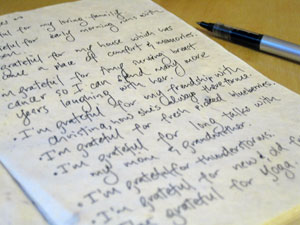 grateful for my loving family
grateful for early morning
grateful for my house which has
become a place of comfort & memories.
I'm grateful for
cancer so I can spend many more
years laughing with her.
• I'm grateful for my friendship with
Christina, how she's always there for me.
• I'm grateful for fresh picked blueberries.
• I'm grateful for long talks with
my mom & grandmother.
• I'm grateful for thunderstorms.
• I'm grateful for new & old
• I'm grateful for yoga